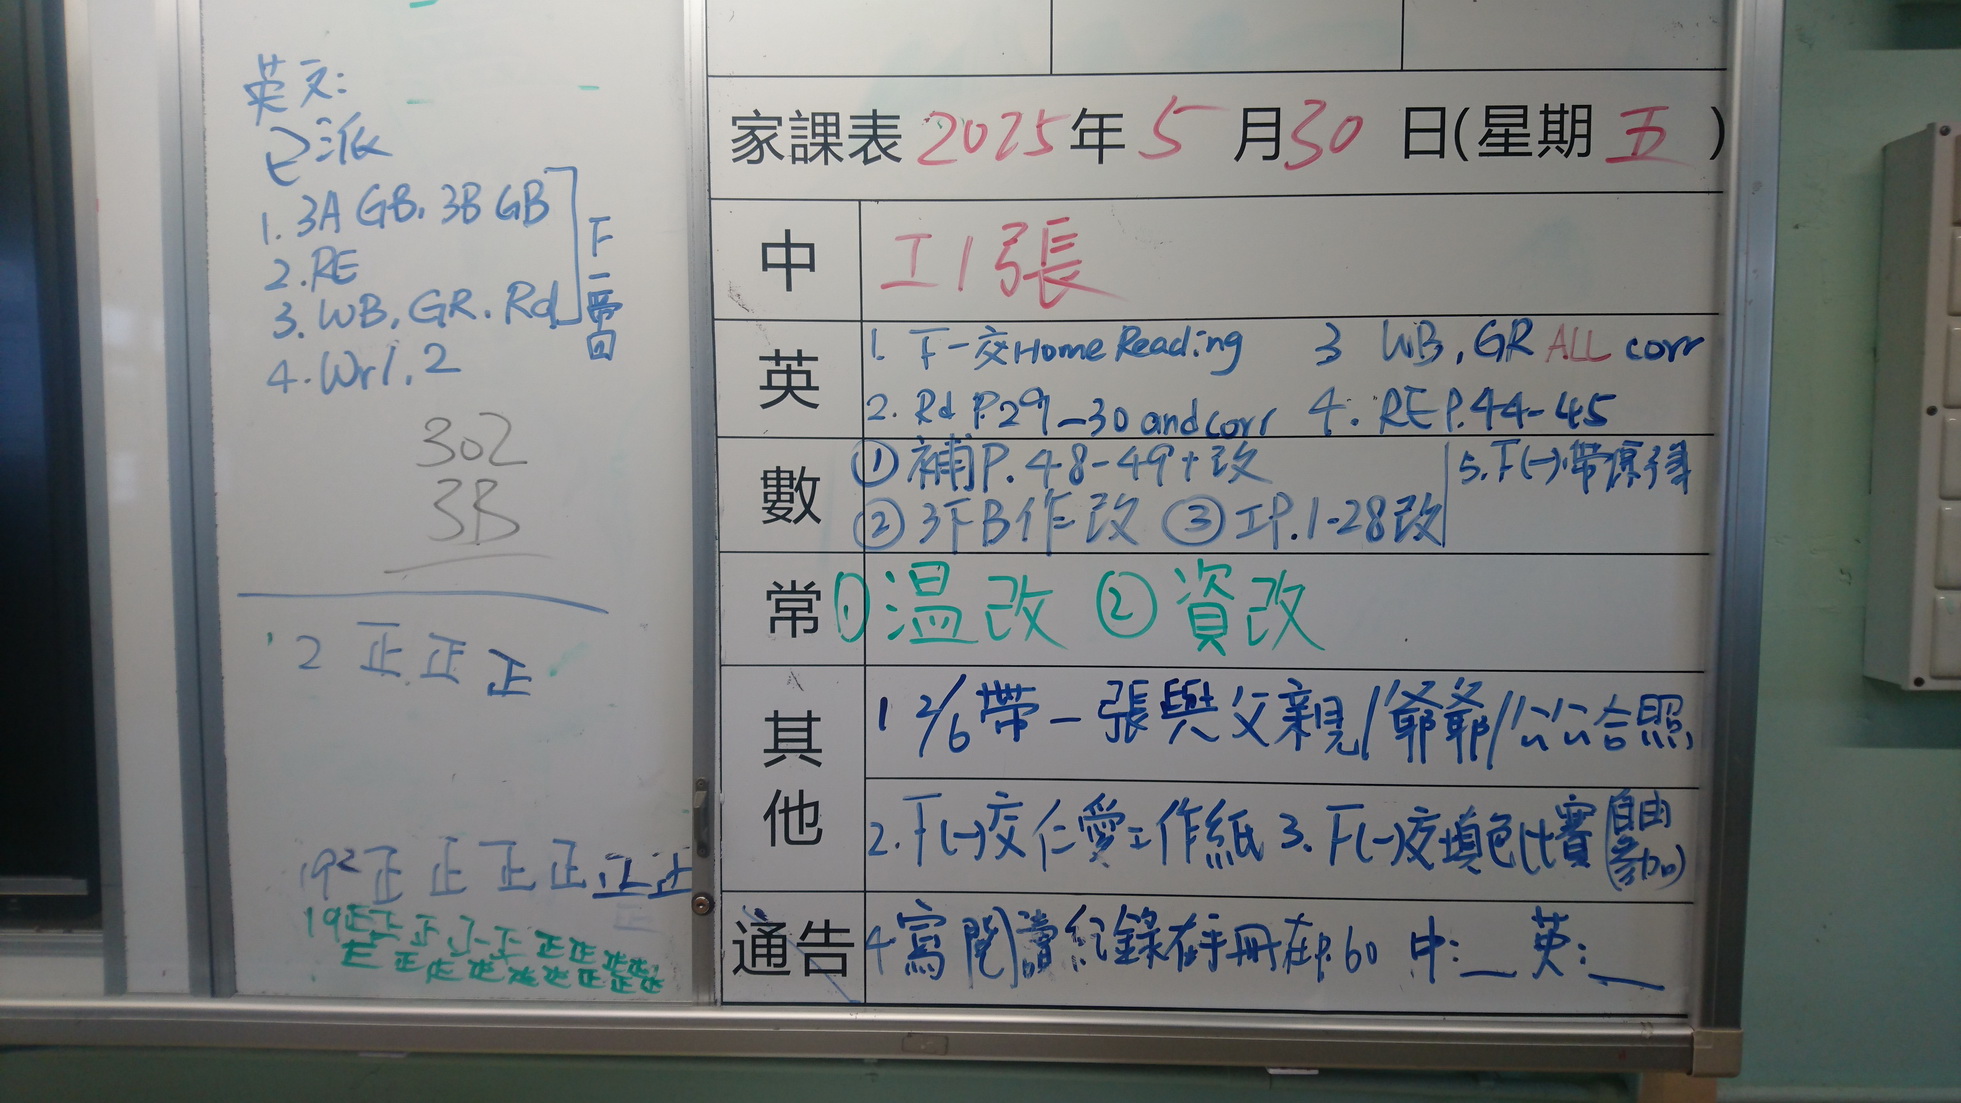 英文:
已派
1. 3A GB, 3B GB
2. RE
3. WB, GR, Rd
4. Wr1, 2
下一帶回
302
3B
2 正正正
192正正正正正正
家課表 2025年 5月30日(星期五)
中 工1張
英 1. 下一交Home Reading 3 WB, GR ALL corr
2. Rd P.29-30 and corr 4. RE P.44-45
數 ①補P.48-49+改
②3下B作改 ③工P.1-28改
5.下(一)帶
常 ①温改 ②資改
其他 1 2/6帶一張與父親/爺爺/公公合照
2.下(一)交仁愛工作紙 3.下(一)交填色比賽(自由參加)
通告 4寫閱讀紀錄在手冊在P.60 中:_ 英:_